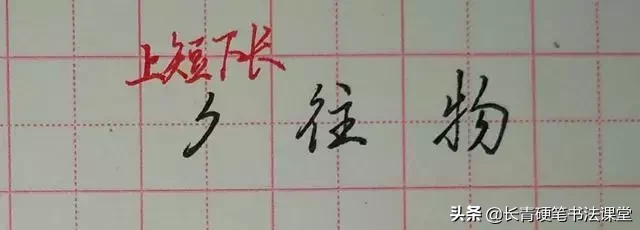 上短下长
往 物
头条 @长青硬笔书法课堂